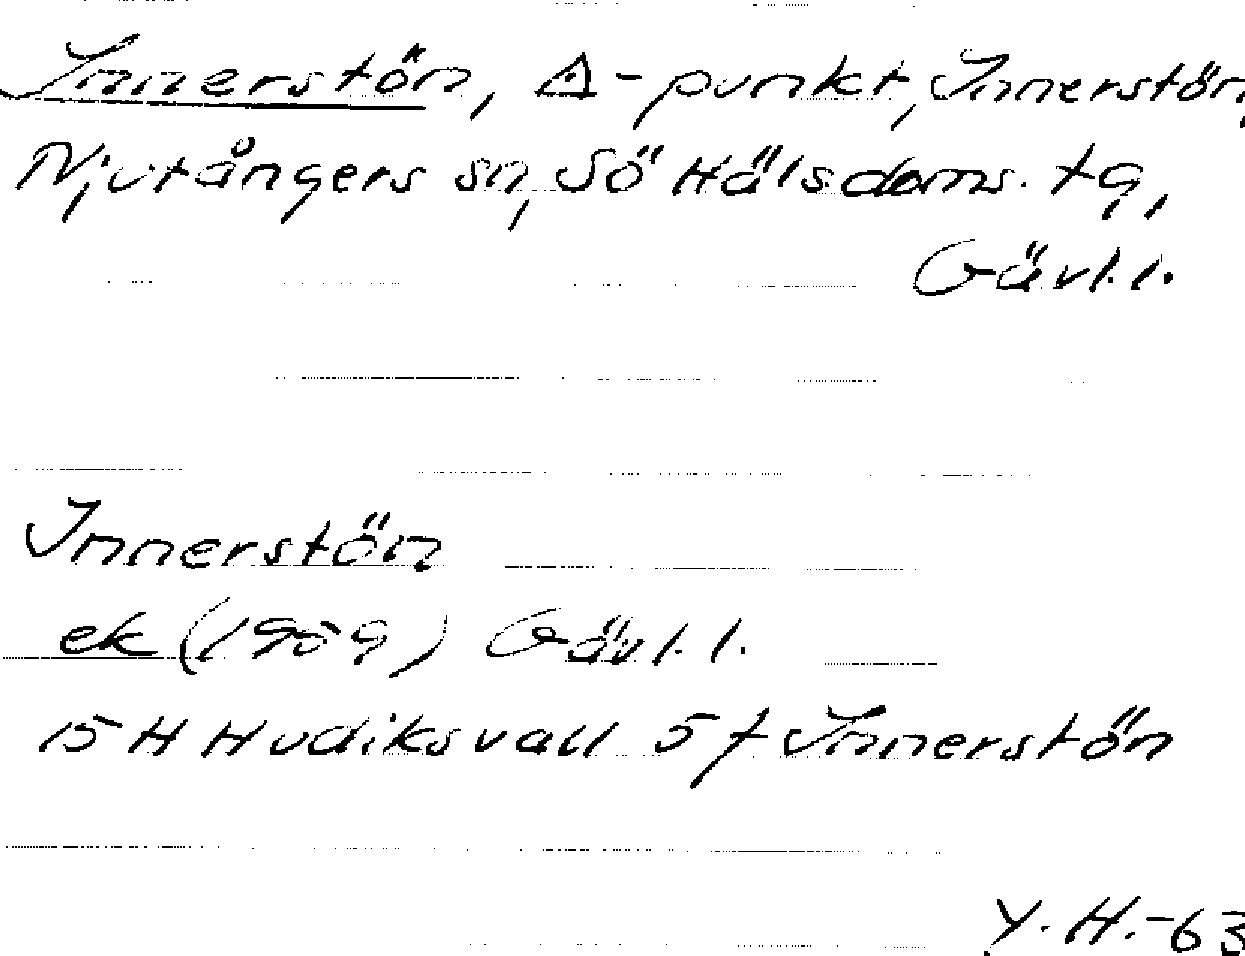 Innerstön, Δ-punkt, Innerstön,
Njutångers sn, Sö Hälsdoms. tg,
Gävl. l.
Innerstön
ek (1959) Gävl. l.
15 H Hudiksvall 5 f Innerstön
Y. H. -63